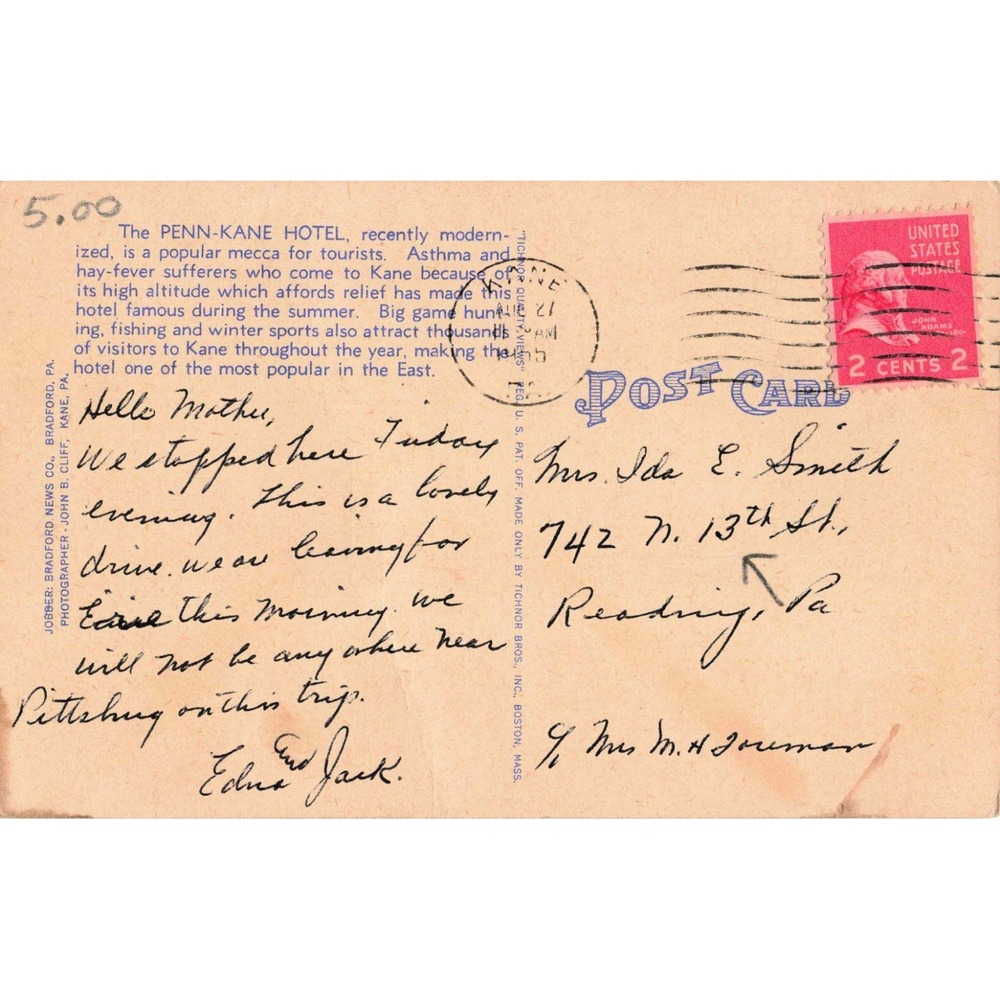 5.00
The PENN-KANE HOTEL, recently modern-
ized, is a popular mecca for tourists. Asthma and
hay-fever sufferers who come to Kane because of
its high altitude which affords relief has made this
hotel famous during the summer. Big game hunt-
ing, fishing and winter sports also attract thousands
of visitors to Kane throughout the year, making the
hotel one of the most popular in the East.
JOBBER: BRADFORD NEWS CO., BRADFORD, PA.
PHOTOGRAPHER - JOHN B. CLIFF, KANE, PA.
Hello Mother,
We stopped here Friday
evening. This is a lovely
drive. we are leaving for
Erie this morning. we
will not be any where near
Pittsburg on this trip.
Edna and Jack.
"TICHNOR QUALITY VIEWS" REG. U. S. PAT. OFF. MADE ONLY BY TICHNOR BROS., INC., BOSTON, MASS.
KANE
AUG 27
AM
1955
UNITED
STATES
POSTAGE
JOHN
ADAMS
2 CENTS 2
POST CARD
Mrs. Ida E. Smith
742 N. 13th St.,
Reading, Pa
c/o Mrs M. H Foreman